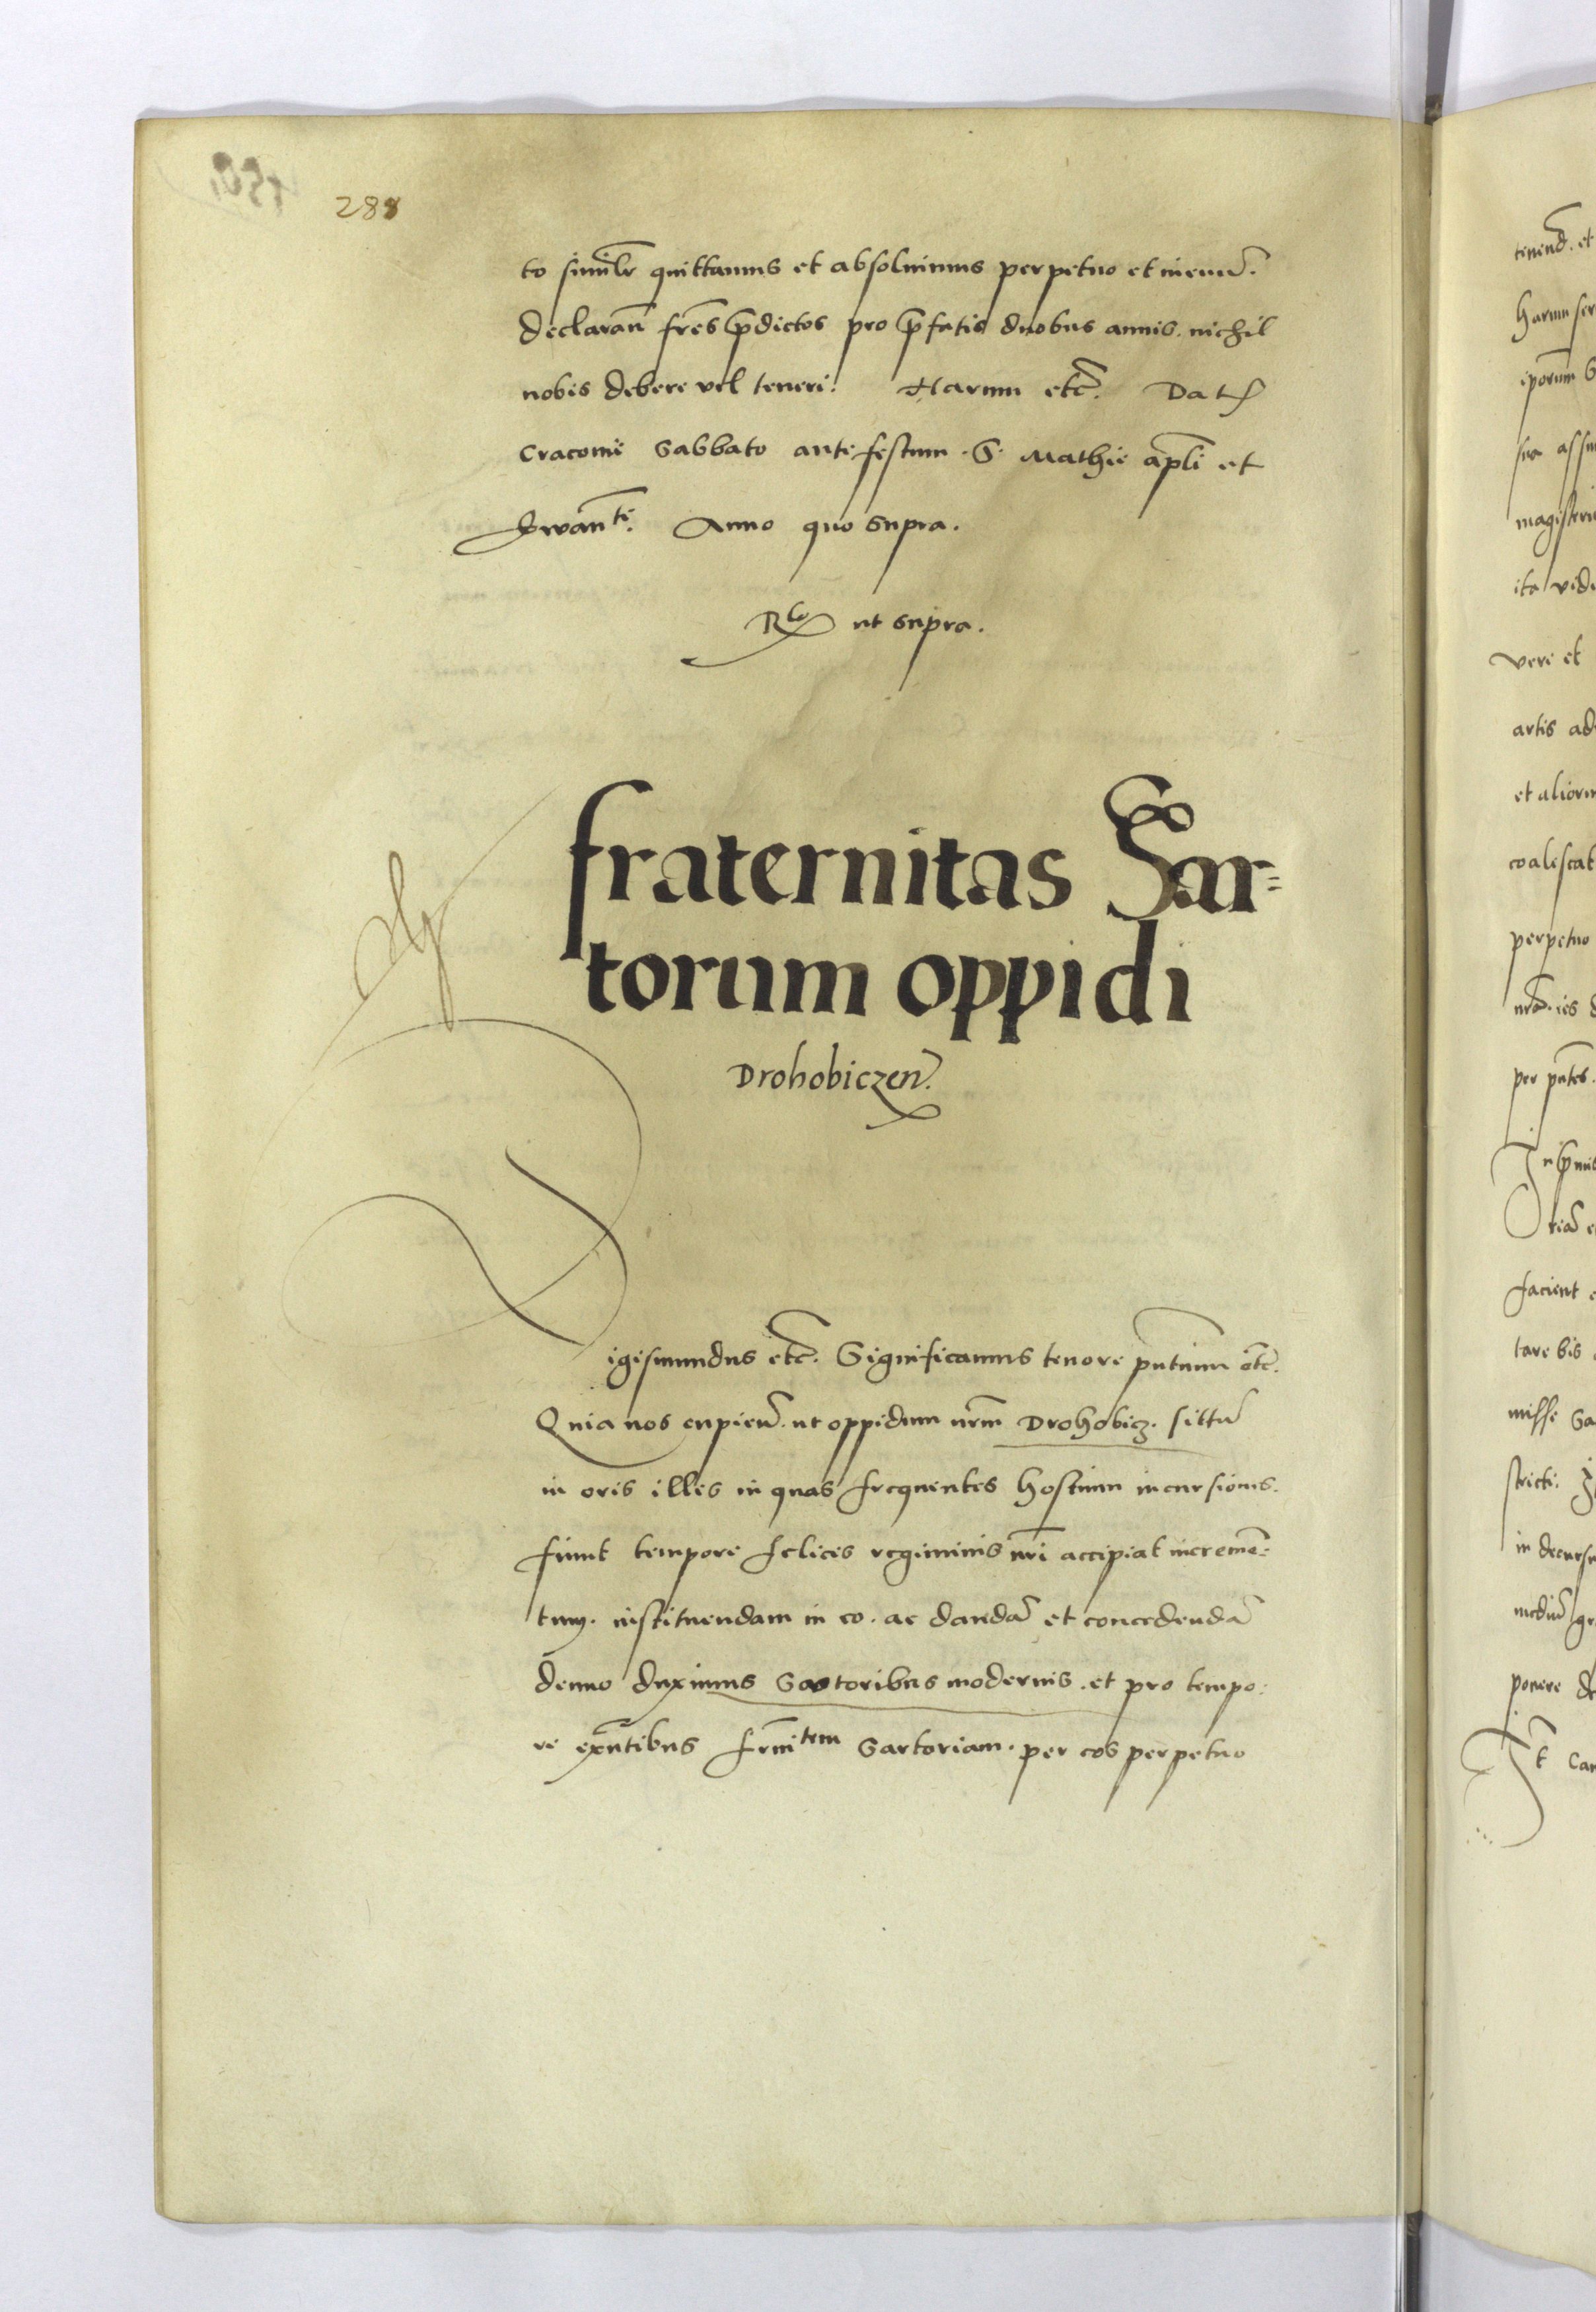 288
to similr quittamus et absolvimus perpetuo et ineuum.
declaran͂ fr̃es p̃dictos pro p̃fatis duobus annis. nichil
nobis debere vel teneri. Harum etc̃. Dat
Cracovie Sabbato ante festum. S. Mathie ap̃li et
Ewan͂te. Anno quo supra.
Rlo ut supra.
fraternitas Sar=
torum oppidi
Drohobiczen̄.
igismundus etc̃. Significamus tenore pñtium etc̃.
Quia nos cupien̄. ut oppidum nr̃m Drohobicz. sittũ
in oris illis in quas frequentes hostium incursiones.
fiunt tempore felicis regiminis nr̃i accipiat incremẽ=
tum. instituendam in eo. ac dandã et concedendã
denuo duximus Sartoribus modernis. et pro tempo.
re exñtibus fr̃nitem Sartoriam. per eos perpetuo
tenend. et
harum ser
iporum̃
sua assu
magisteri
ita vide
vere et
artis ad
et alioru
coalescat
perpetuo
per pñtes.
facient
tare bis
misse Sa
stricti.
in decursu
ponere de
It Can